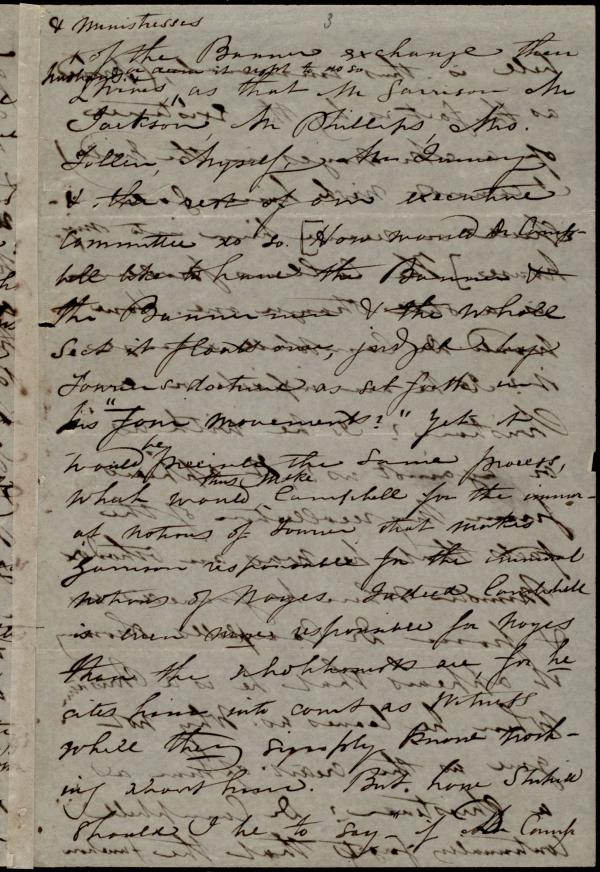 3
& Ministresses
of the Banner exchange their
husbands or deem it right to do so
& wives, as that Mr Garrison Mr
Jackson, Mr Phillips, Mrs.
Follen, Myself, Mr Quincy
& the rest of our executive
Committee do so. [How would Dr Camp-
bell like to have the Banner &
the Banner men & the whole
Sect it floats over, judged by
Fourier's doctrine as set forth in
his "four movements?" Yet it
would be precisely the same process,
What would thus make Campbell for the immor-
al notions of Fourier that makes
Garrison responsible for the criminal
notions of Noyes. Indeed Campbell
is even more responsible for Noyes
than the abolitionists are, for he
cites him into court as Witness
while they simply know noth-
ing about him. But how
should I be to say "if Dr Camp